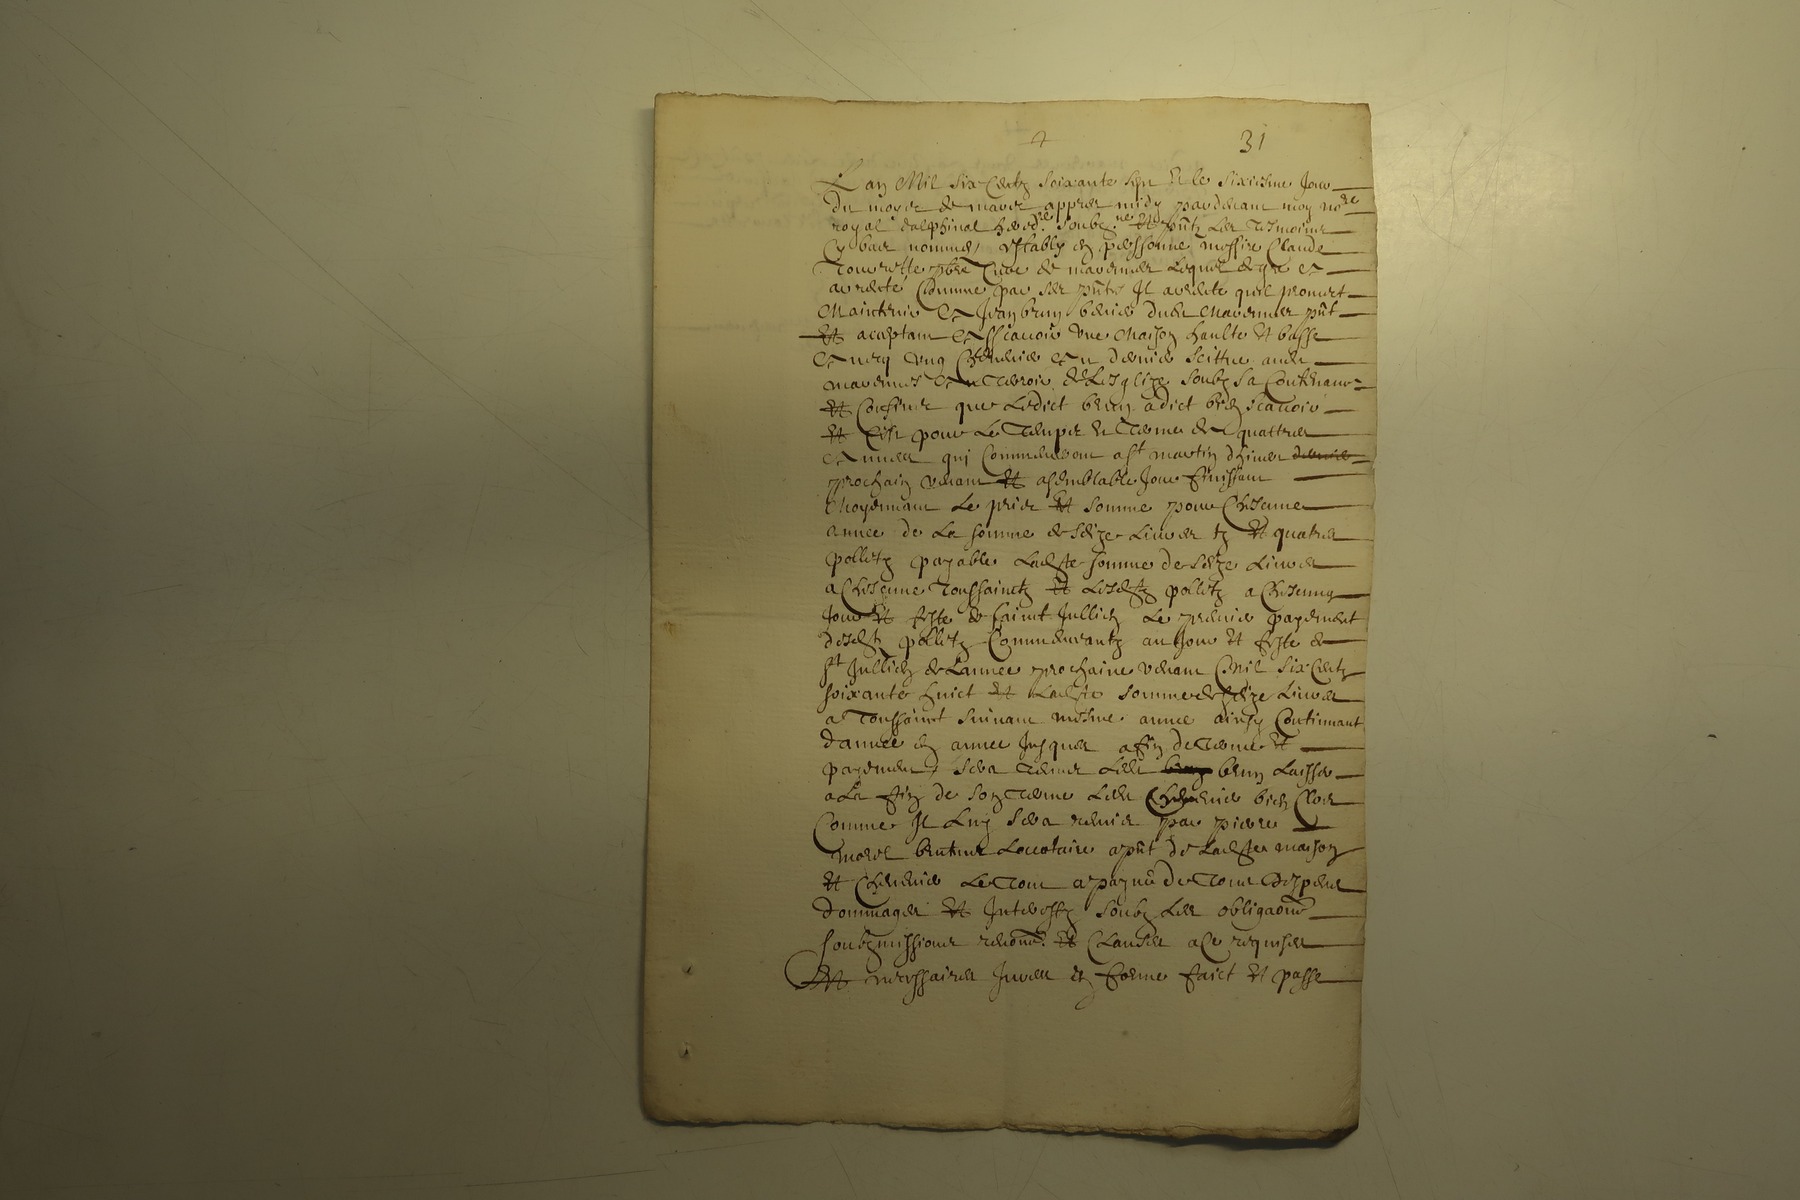 31
Lan Mil six Centz soixante sept et le sixiesme Jour
du moyes de mars appres midy pardevant moy no.re
royal dalphinal hered.re soubz.ne et pntz les tesmoins
Cy bas nommes, estably en personne messire Claude
pbre Cure de lequel de gre et
arrente Comme par ses pntes Il arrente quil promect
Maintenir et a Jean brun dudt pnt
et aceptant et assavoir Une Maison haulte et basse
et avecq ung et un scittue audt
et terroir de Lesglize soubz sa Contenance
et Confins que Ledict brun a dict bien scavoir
et Cest pour Le temps et terme de quattres
annees qui Commenceront a st martin dhiver
prochain venant et a semblable Jour finissant
Moyennant Le pris et somme pour Chescune
annee de La somme de seize Livres tz et quatres
polletz payable Ladte somme de seize Livres
a Chescune Toussainctz et Lesdtz polletz a Chescung
Jour et feste de sainct Jullien Le premier payement
desdtz polletz Commencantz au Jour et feste de
st Jullien de Lannee prochaine venant Mil six Centz
soixante huict et Ladte somme de seize Livres
a Toussainct suivant mesme annee ainsy Continuant
dannee en annee Jusques a fin de terme et
payement, sera tenus Ledt brun Laisser
a La fin de son terme Ledt bien Clos
Comme Il Luy sera remis par pierre
morel Locataire a pnt de Ladte maison
et Le tout a payne de tous despens
dommages et Interestz soubz Les obligaons
soubzmissions renon.s et Clauses a Ce requises
et necessaires Jures en forme faict et passe